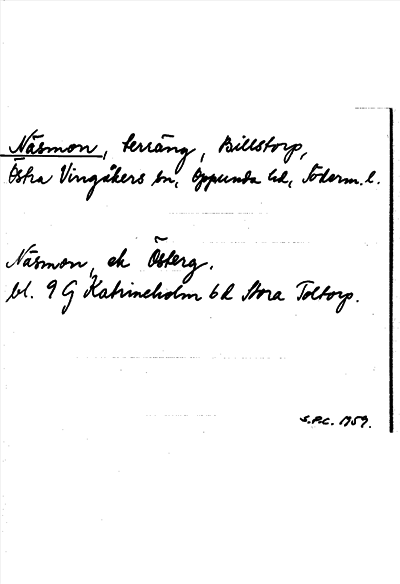 Näsmon, terräng, Billstorp,
Östra Vingåkers sn, Oppunda hd, Söderm. l.
Näsmon, ek Österg.
bl. 9 G Katrineholm 6 d Stora Toltorp.
S.P.C. 1959.